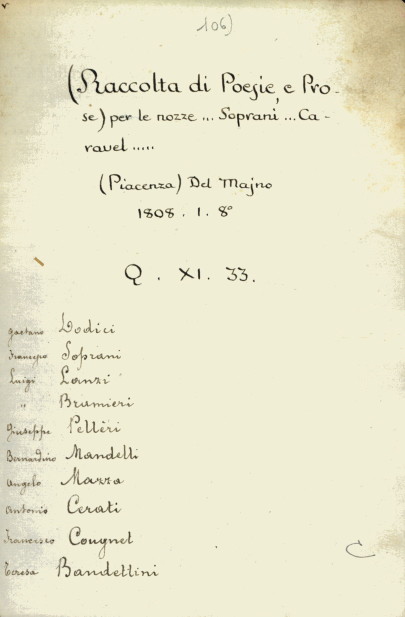 106)
(Raccolta di Poesie, e Pro-
se) per le nozze ... Soprani ... Ca-
ravel .....
(Piacenza) Del Majno
1808 . 1 . 8°
Q . XI . 33.
Gaetano Dodici
Soprani
Luigi Lanzi
" Bramieri
Giuseppe Pelleri
Bernardino Mandelli
Angelo Mazza
Antonio Cerati
Francesco Cougnet
C
Teresa Bandettini